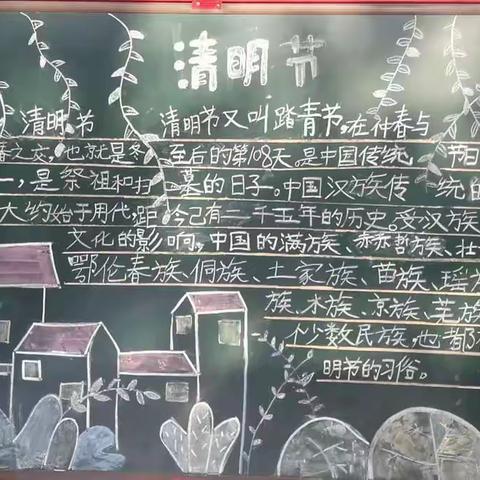 清明节
清明节 清明节又叫踏青节,在仲春与
春之交,也就是冬至后的第108天。是中国传统 节日
一,是祭祖和扫墓的日子。中国汉族传统的
大约始于周代,距今已有二千五年的历史。受汉族
文化的影响,中国的满族、赫哲族、壮
鄂伦春族、侗族、土家族、苗族、瑶
族、水族、京族、羌族
少数民族,也都
明节的习俗。